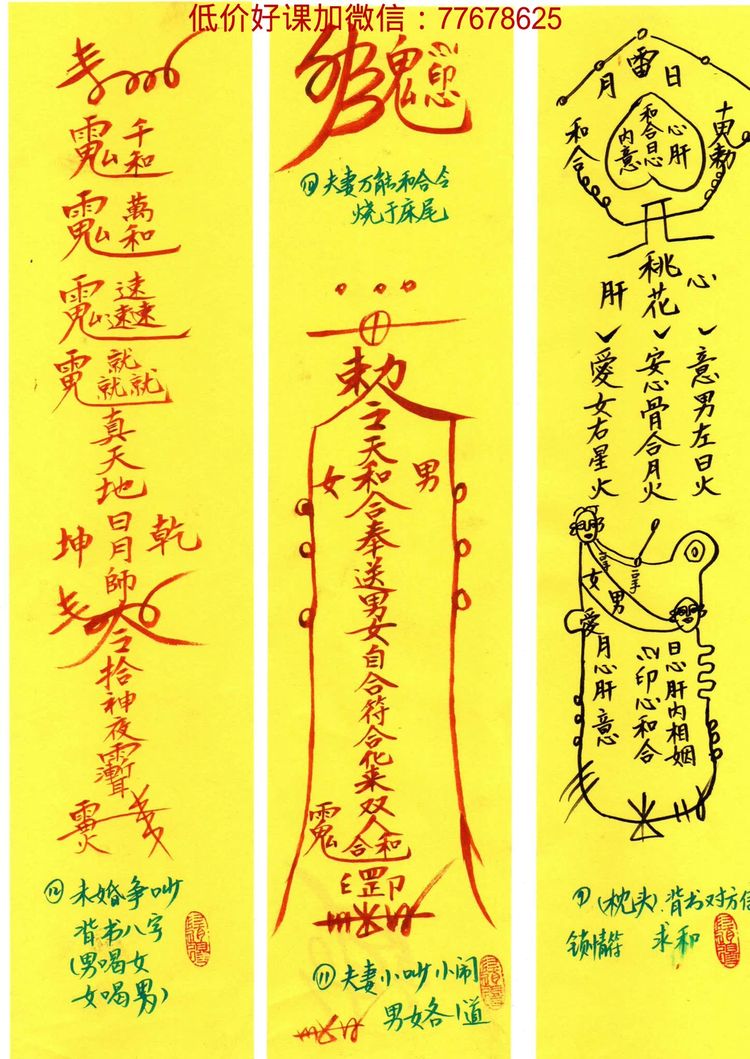 低价好课加微信：77678625
千和
萬和
速速速
就就就
真天地
日月師
乾
坤
拾神夜
⑫未婚争吵
背书八字
(男喝女
女喝男)
魁
印
⑩夫妻万能和合令
烧于床尾
勅
天和合奉送男女自合符合化来双人
男
女
和合
罡
⑪夫妻小吵小闹
男女各1道
月雷日
和合
勅
心肝
和合日心
内意
桃花
心
肝
意男左日火
安心骨合月火
愛女右星火
女
男
愛月心肝意
印心和合
日心肝内相姻
⑨(枕头)背书对方信
锁情符 求和